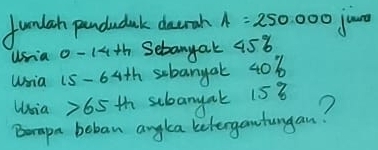 Jumlah penduduk daerah A = 250.000 jiwa
Usia 0-14 th Sebanyak 45%
Usia 15-64th sebanyak 40%
Usia >65 th sebanyak 15%
Berapa beban angka ketergantungan?